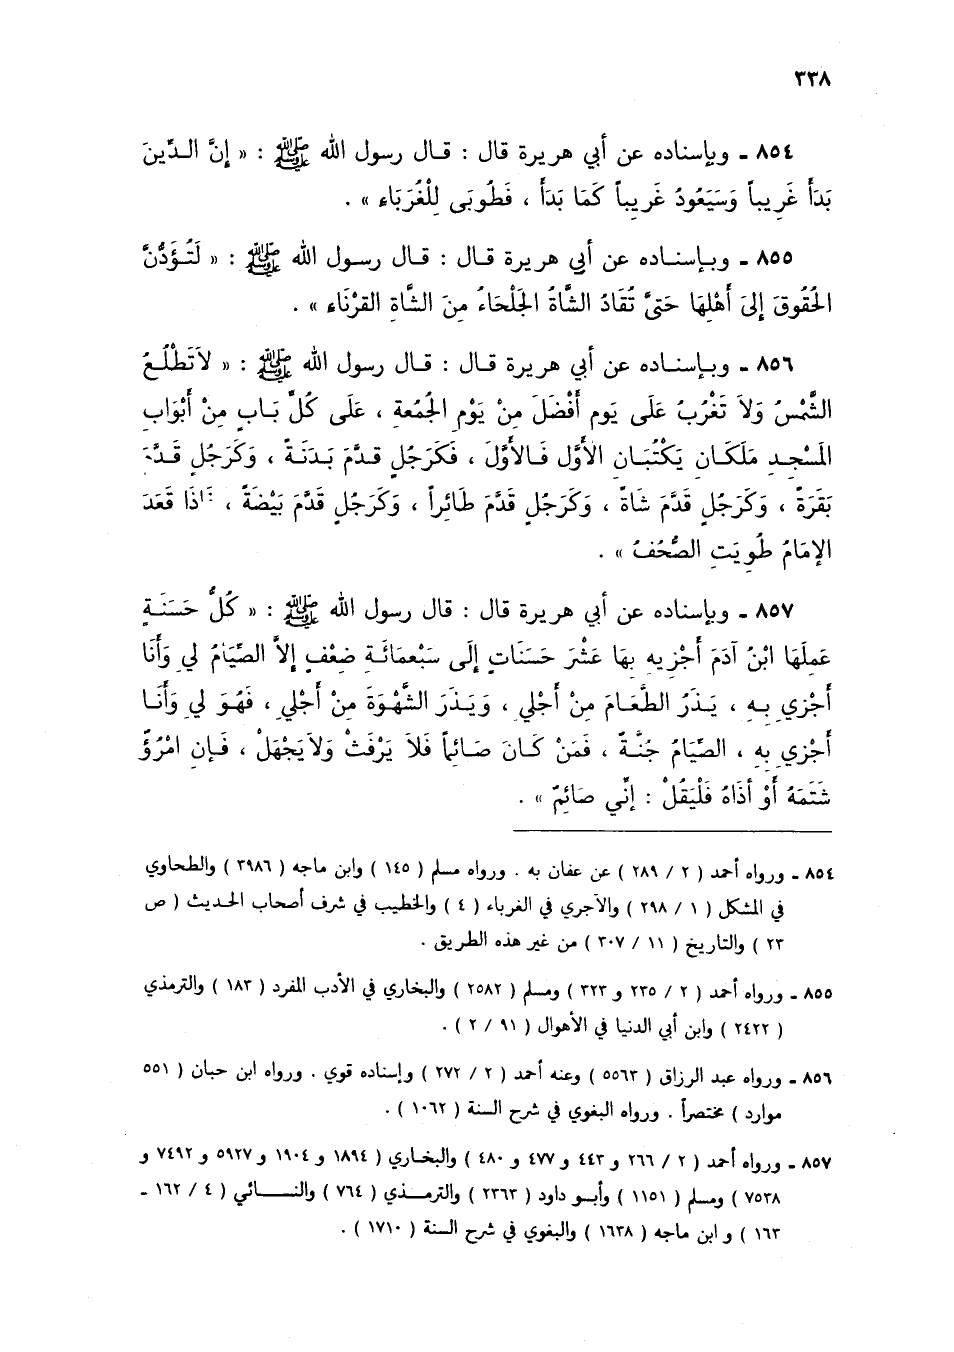 ٣٣٨
٨٥٤ ـ وبإسناده عن أبي هريرة قال : قـال رسول الله ﷺ : « إنَّ الـدِّينَ
بَدَأَ غَرِيباً وَسَيَعُودُ غَرِيباً كَمَا بَدَأَ ، فَطُوبَى لِلْغُرَبَاءِ » .
٨٥٥ ـ وبـإسنـاده عن أبي هريرة قـال : قـال رسـول الله ﷺ : « لَتُـؤَدُّنَّ
الحُقُوقَ إِلىَ أَهْلِهَا حَتىَّ تُقَادُ الشَّاةُ الجَلْحَاءُ مِنَ الشَّاةِ القَرْنَاءِ » .
٨٥٦ ـ وبـإسناده عن أبي هريرة قـال : قـال رسول الله ﷺ : « لاَتَطْلُـعُ
الشَّمْسُ وَلاَ تَغْرُبُ عَلَى يَوم أَفْضَلَ مِنْ يَوْمِ الجُمُعةِ ، عَلَى كُلِّ بَـابٍ مِنْ أَبْوَابِ
المَسْجِـدِ مَلَكَـانِ يَكْتُبَـانِ الأوَّل فَـالأَوَّلَ ، فَكَرَجُلٍ قدَّمَ بَـدَنَـةً ، وَكَرَجُلٍ قَـدَّمَ
بَقَرَةً ، وَكَرَجُلٍ قَدَّمَ شَاةً ، وَكَرَجُلٍ قَدَّمَ طَائِراً ، وَكَرَجُلٍ قَدَّمَ بَيْضَةً ، فإذَا قَعَدَ
الإمَامُ طُوِيَتِ الصُّحُفُ » .
٨٥٧ ـ وبإسناده عن أبي هريرة قال : قال رسول الله ﷺ : « كُلُّ حَسَنَـةٍ
عَمِلَهَا ابْنُ آدَمَ أَجْزِيهِ بِهَا عَشْرَ حَسَنَاتٍ إِلَى سَبْعمَائَـةِ ضِعْفٍ إلاَّ الصِّيَامُ لِي وَأَنَا
أَجْزِي بِـهِ ، يَـذَرُ الطَّعَـامَ مِنْ أَجْلِي ، وَيَـذَرَ الشَّهْوَةَ مِنْ أَجْلِي ، فَهُـوَ لِي وَأَنَـا
أَجْزِي بِهِ ، الصِّيَامُ جُنَّـةٌ ، فَمَنْ كَـانَ صَـائِماً فَلاَ يَرْفَثْ وَلاَ يَجْهَلْ ، فَـإنِ امْرُؤٌ
شَتَمَهُ أَوْ أذَاهُ فَلْيَقُلْ : إنِّي صَائِمٌ » .
٨٥٤ ـ ورواه أحمد ( ٢ / ٢٨٩ ) عن عفان به . ورواه مسلم ( ١٤٥ ) وابن ماجه ( ٣٩٨٦ ) والطحاوي
في المشكل ( ١ / ٢٩٨ ) والآجري في الغرباء ( ٤ ) والخطيب في شرف أصحاب الحديث ( ص
٢٣ ) والتاريخ ( ١١ / ٣٠٧ ) من غير هذه الطريق .
٨٥٥ ـ ورواه أحمد ( ٢ / ٢٣٥ و ٣٢٣ ) ومسلم ( ٢٥٨٢ ) والبخاري في الأدب المفرد ( ١٨٣ ) والترمذي
( ٢٤٢٢ ) وابن أبي الدنيا في الأهوال ( ٩١ / ٢ ) .
٨٥٦ ـ ورواه عبد الرزاق ( ٥٥٦٣ ) وعنه أحمد ( ٢ / ٢٧٢ ) وإسناده قوي . ورواه ابن حبان ( ٥٥١
موارد ) مختصراً . ورواه البغوي في شرح السنة ( ١٠٦٢ ) .
٨٥٧ ـ ورواه أحمد ( ٢ / ٢٦٦ و ٤٤٣ و ٤٧٧ و ٤٨٠ ) والبخاري ( ١٨٩٤ و ١٩٠٤ و ٥٩٢٧ و ٧٤٩٢ و
٧٥٣٨ ) ومسلم ( ١١٥١ ) وأبـو داود ( ٢٣٦٣ ) والترمـذي ( ٧٦٤ ) والنسـائي ( ٤ / ١٦٢ ـ
١٦٣ ) و ابن ماجه ( ١٦٣٨ ) والبغوي في شرح السنة ( ١٧١٠ ) .